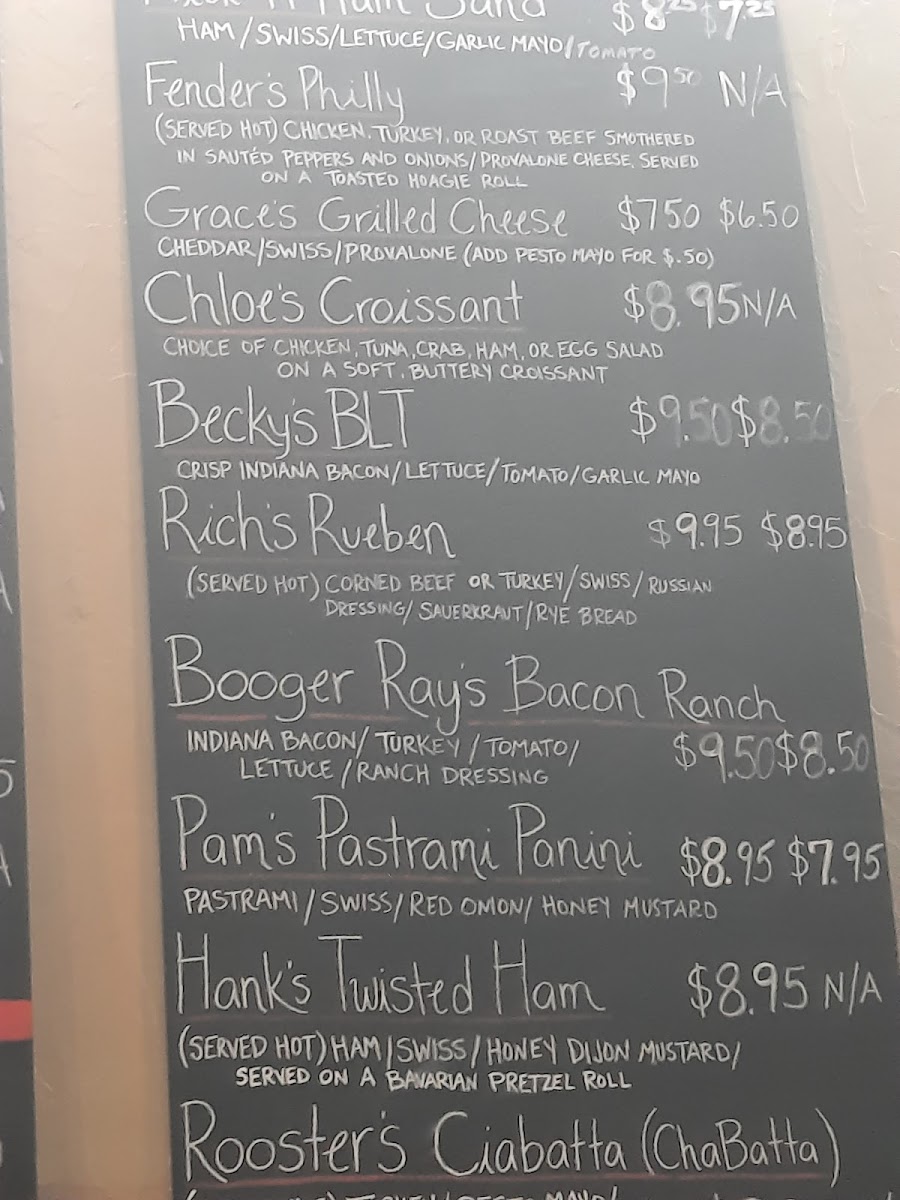 Ham Sand $8.25 $7.25
HAM/SWISS/LETTUCE/GARLIC MAYO/TOMATO
Fender's Philly $9.50 N/A
(SERVED HOT) CHICKEN, TURKEY, OR ROAST BEEF SMOTHERED
IN SAUTÉD PEPPERS AND ONIONS/PROVALONE CHEESE, SERVED
ON A TOASTED HOAGIE ROLL
Grace's Grilled Cheese $750 $6.50
CHEDDAR/SWISS/PROVALONE (ADD PESTO MAYO FOR $.50)
Chloe's Croissant $8.95 N/A
CHOICE OF CHICKEN, TUNA, CRAB, HAM, OR EGG SALAD
ON A SOFT, BUTTERY CROISSANT
Becky's BLT $9.50 $8.50
CRISP INDIANA BACON/LETTUCE/TOMATO/GARLIC MAYO
Rich's Rueben $9.95 $8.95
(SERVED HOT) CORNED BEEF OR TURKEY/SWISS/RUSSIAN
DRESSING/SAUERKRAUT/RYE BREAD
Booger Ray's Bacon Ranch
INDIANA BACON/TURKEY/TOMATO/ $9.50 $8.50
LETTUCE/RANCH DRESSING
Pam's Pastrami Panini $8.95 $7.95
PASTRAMI/SWISS/RED OMON/HONEY MUSTARD
Hank's Twisted Ham $8.95 N/A
(SERVED HOT) HAM/SWISS/HONEY DIJON MUSTARD/
SERVED ON A BAVARIAN PRETZEL ROLL
Rooster's Ciabatta (ChaBatta)